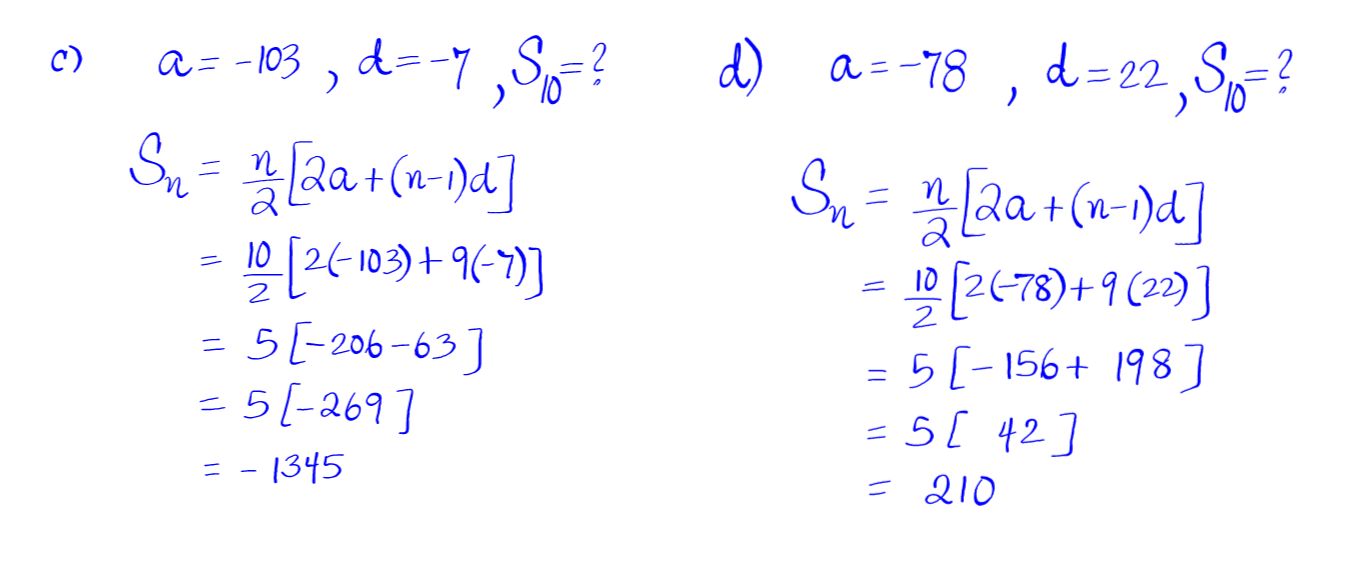 c) a = -103 , d = -7 , S₁₀ = ?
Sₙ = n/2 [2a + (n-1)d]
= 10/2 [2(-103) + 9(-7)]
= 5 [-206 - 63]
= 5 [-269]
= - 1345
d) a = -78 , d = 22 , S₁₀ = ?
Sₙ = n/2 [2a + (n-1)d]
= 10/2 [2(-78) + 9(22)]
= 5 [-156 + 198]
= 5 [ 42 ]
= 210